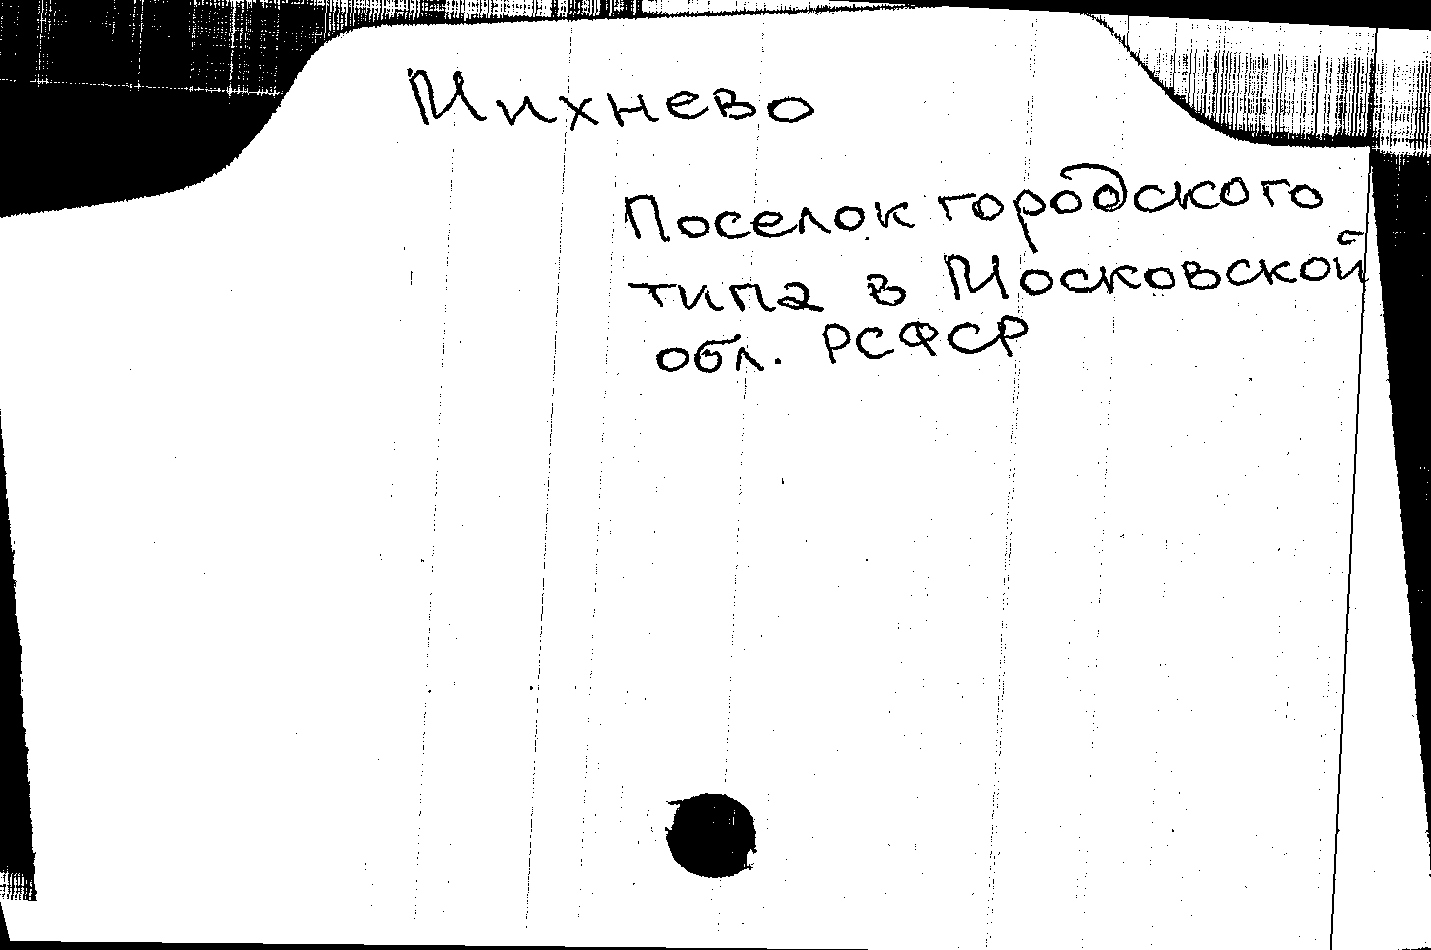 Михнево
Поселок городского
типа в Московской
обл. РСФСР